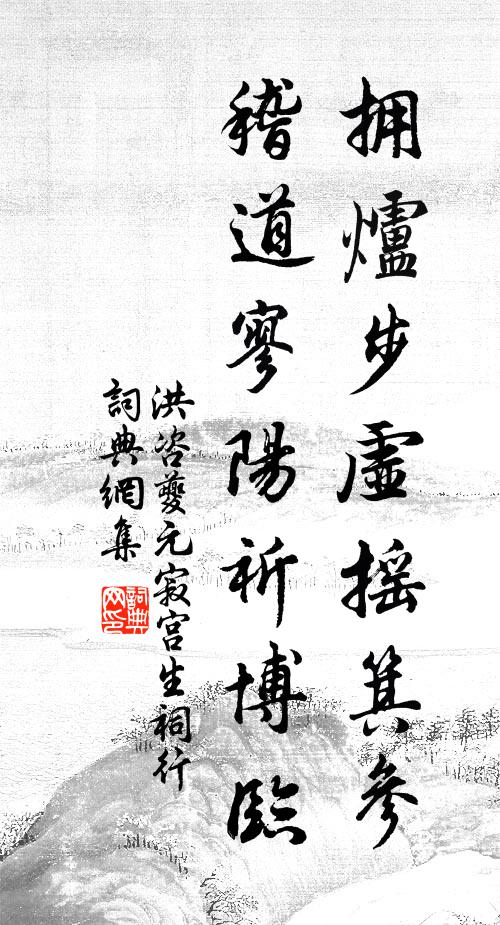 拥爐步虛摇箕參
稽道寥陽祈博臨
洪咨夔元寂宫生祠行
詞典網集
詞典网印